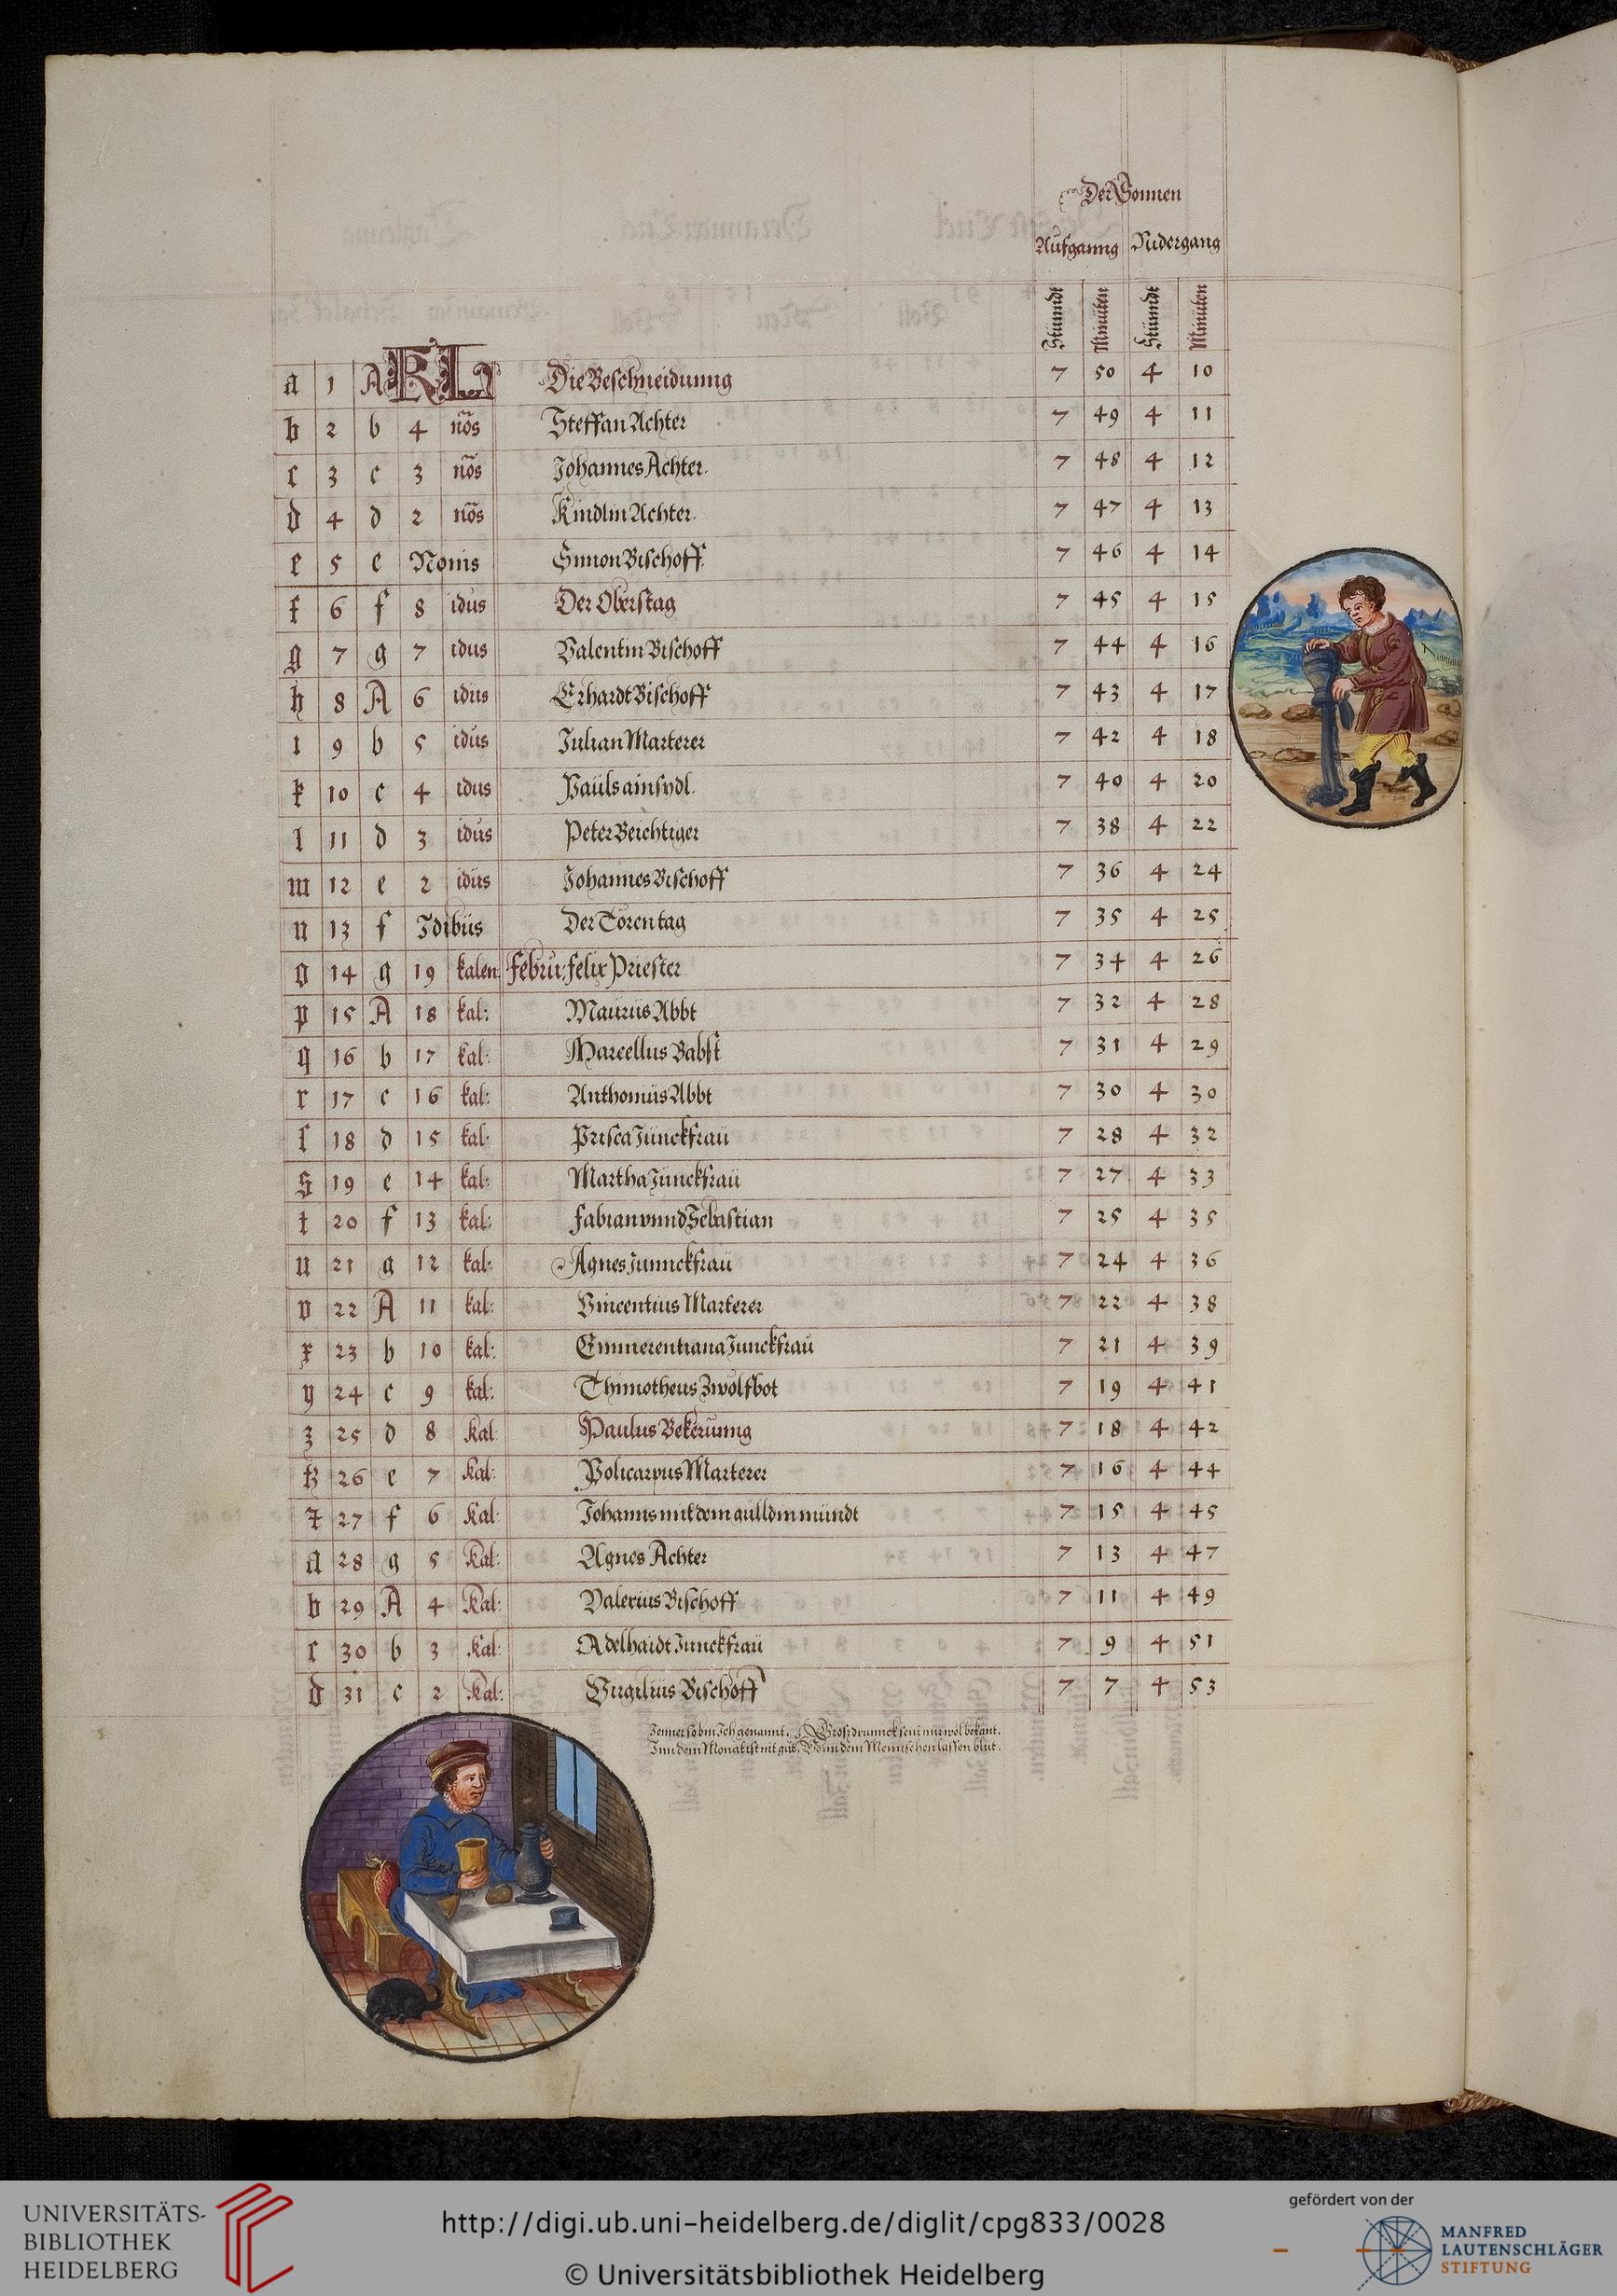 Der Sonnen
Aufganng Nidergang
Stündt Minuten Stündt Minuten
a 1 A KL Die Beschneidunng 7 50 4 10
b 2 b 4 nōs Steffan Achter 7 49 4 11
c 3 c 3 nōs Johannes Achter. 7 48 4 12
d 4 d 2 nōs Kindlin Achter. 7 47 4 13
e 5 e Nonis Simon Bischoff. 7 46 4 14
f 6 f 8 idus Der Oberstag 7 45 4 15
g 7 g 7 idus Valentin Bischoff 7 44 4 16
h 8 A 6 idus Erhardt Bischoff 7 43 4 17
i 9 b 5 idus Julian Marterer 7 42 4 18
k 10 c 4 idus Paüls ainsydl. 7 40 4 20
l 11 d 3 idus Peter Beichtiger 7 38 4 22
m 12 e 2 idus Johannes Bischoff 7 36 4 24
n 13 f Idibüs Der Torentag 7 35 4 25
o 14 g 19 kalen: Febru: Felix Priester 7 34 4 26
p 15 A 18 kal: Maurüs Abbt 7 32 4 28
q 16 b 17 kal: Marcellus Babst 7 31 4 29
r 17 c 16 kal: Anthoniüs Abbt 7 30 4 30
ſ 18 d 15 kal: Prisca Jünckfraü 7 28 4 32
s 19 e 14 kal: Martha Jünckfraü 7 27 4 33
t 20 f 13 kal: Fabian vnnd Sebastian 7 25 4 35
u 21 g 12 kal: Agnes Junnckfraü 7 24 4 36
v 22 A 11 kal: Vincentius Marterer 7 22 4 38
x 23 b 10 kal: Emmerentiana Junckfraü 7 21 4 39
y 24 c 9 kal: Thimotheus Zwolfbot 7 19 4 41
z 25 d 8 Kal: Paulus Bekerünng 7 18 4 42
tz 26 e 7 Kal: Policarpus Marterer 7 16 4 44
27 f 6 Kal: Johanns mit dem gulldin mündt 7 15 4 45
a 28 g 5 Kal: Agnes Achter 7 13 4 47
b 29 A 4 Kal: Valerius Bischoff 7 11 4 49
c 30 b 3 Kal: Adelhaidt Junckfraü 7 9 4 51
d 31 c 2 Kal: Virgiliüs Bischoff 7 7 4 53
Jenner so bin Ich genannt. Gross drünnck seint mir wol bekant.
Inn dem Monat ist nit güt. Vonn dem Mennschen lassen blut.
UNIVERSITÄTS-
BIBLIOTHEK
HEIDELBERG
http://digi.ub.uni-heidelberg.de/diglit/cpg833/0028
© Universitätsbibliothek Heidelberg
gefördert von der
MANFRED
LAUTENSCHLÄGER
STIFTUNG